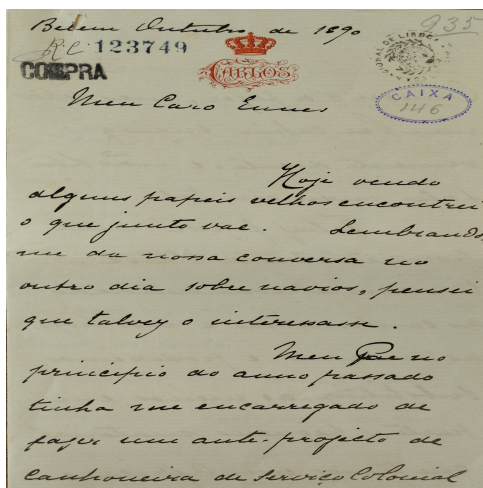 Belem Outubro de 1890
935
RC 123749
COMPRA
CARLOS
CAIXA
146
Meu Caro Ennes
Hoje vendo
alguns papeis velhos encontrei
o que junto vae. Lembrando
me da nossa conversa no
outro dia sobre navios, pensei
que talvez o interessasse.
Meu Pae no
principio do anno passado
tinha me encarregado de
fazer um ante-projecto de
canhoneira de serviço Colonial